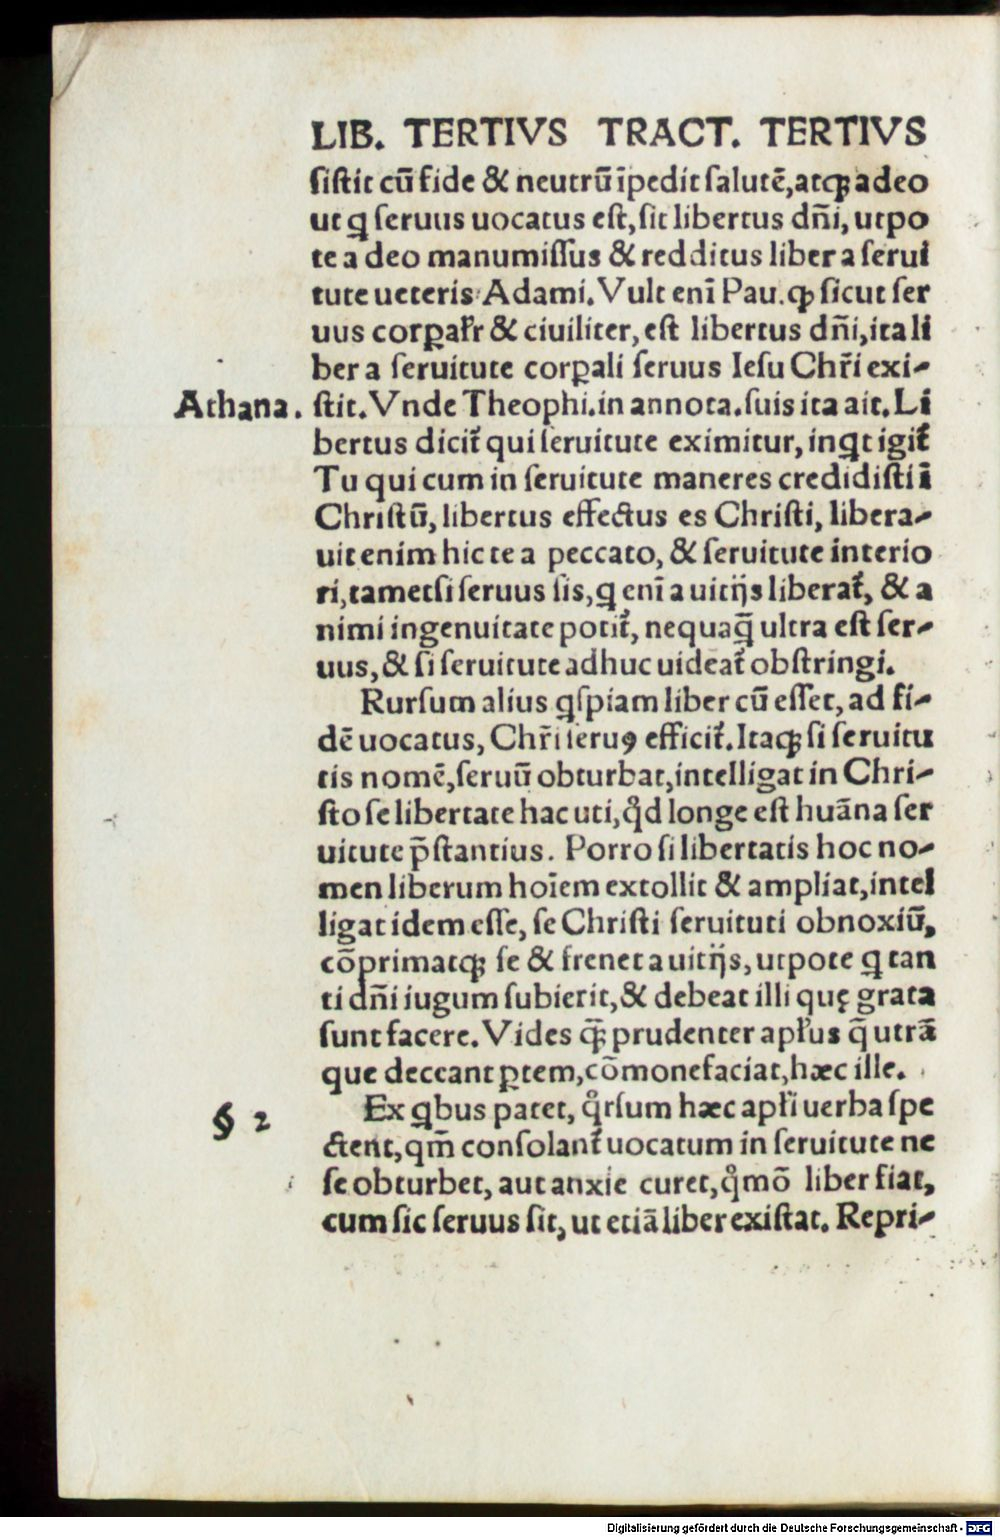 LIB. TERTIVS TRACT. TERTIVS
ſiſtit cū fide & neutrū īpedit ſalutē, atqꝫ adeo
ut ꝗ ſeruus uocatus eſt, ſit libertus dñi, utpo
te a deo manumiſſus & redditus liber a ſerui
tute ueteris Adami. Vult enī Pau. ꝙ ſicut ſer
uus corꝑał̃r & ciuiliter, eſt libertus dñi, ita li
ber a ſeruitute corꝑali ſeruus Ieſu Chr̃i exi-
Athana. ſtit. Vnde Theophi. in annota. ſuis ita ait. Li
bertus dicit̃ qui ſeruitute eximitur, inꝗt igit̃
Tu qui cum in ſeruitute maneres credidiſti ī
Chriſtū, libertus effectus es Chriſti, libera-
uit enim hic te a peccato, & ſeruitute interio
ri, tametſi ſeruus ſis, ꝗ enī a uitijs liberat̃, & a
nimi ingenuitate potit̃, nequaq̄ ultra eſt ſer-
uus, & ſi ſeruitute adhuc uideat̃ obſtringi.
Rurſum alius ꝗſpiam liber cū eſſet, ad fi-
dē uocatus, Chr̃i ſeruꝰ efficit̃. Itaqꝫ ſi ſeruitu
tis nomē, ſeruū obturbat, intelligat in Chri-
ſto ſe libertate hac uti, qͦd longe eſt huāna ſer
uitute p̄ſtantius. Porro ſi libertatis hoc no-
men liberum hoīem extollit & ampliat, intel
ligat idem eſſe, ſe Chriſti ſeruituti obnoxiū,
cōprimatqꝫ ſe & frenet a uitijs, utpote ꝗ tan
ti dñi iugum ſubierit, & debeat illi quę grata
ſunt facere. Vides q̄ꝫ prudenter apłus q̄ utrā
que deceant ꝑtem, cōmonefaciat, hæc ille.
§ 2 Ex ꝗbus patet, qͦrſum hæc apłi uerba ſpe
ctent, qm̄ conſolant̃ uocatum in ſeruitute ne
ſe obturbet, aut anxie curet, qͦmō liber fiat,
cum ſic ſeruus ſit, ut etiā liber exiſtat. Repri-
Digitalisierung gefördert durch die Deutsche Forschungsgemeinschaft - DFG